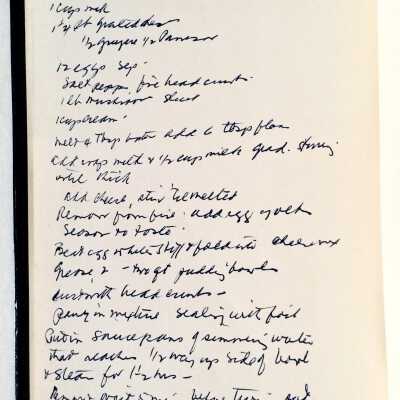 1 cup milk
1 1/4 lb grated cheese
1/2 Gruyere 1/2 Parmesan
12 eggs sep.
Salt pepper, fine bread crumbs
1 lb mushrooms sliced
1 cup cream
melt 6 tbsp butter add 6 tbsp flour
add cup milk & 1/2 cup milk grad. stirring
until thick
add cheese, stir til melted
Remove from fire. add egg yolks
Season to taste.
Beat egg whites stiff & fold into cheese mix
Grease 2 - two qt pudding bowls
dust with bread crumbs -
pour in mixture sealing with foil
Put in saucepans of simmering water
that reaches 1/2 way up side of bowl
& steam for 1 1/2 hrs -
Remove wait 5 min. before and